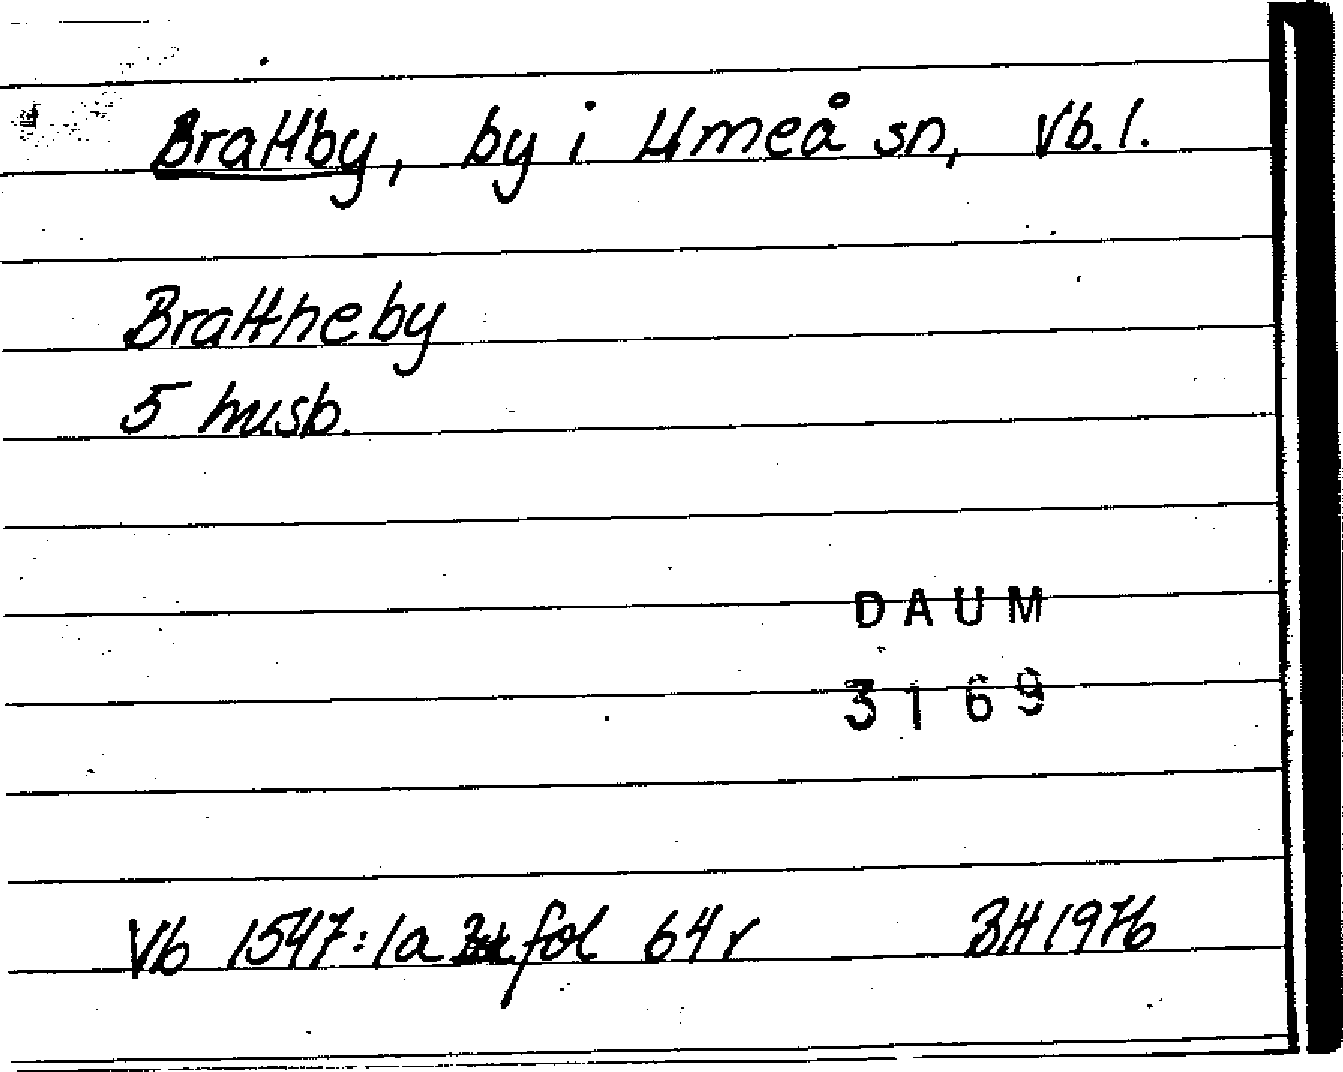 Brattby, by i Umeå sn, Vb. l.
Brattheby
5 husb.
DAUM
3169
Vb 1547:1a fol 64r BH 1976